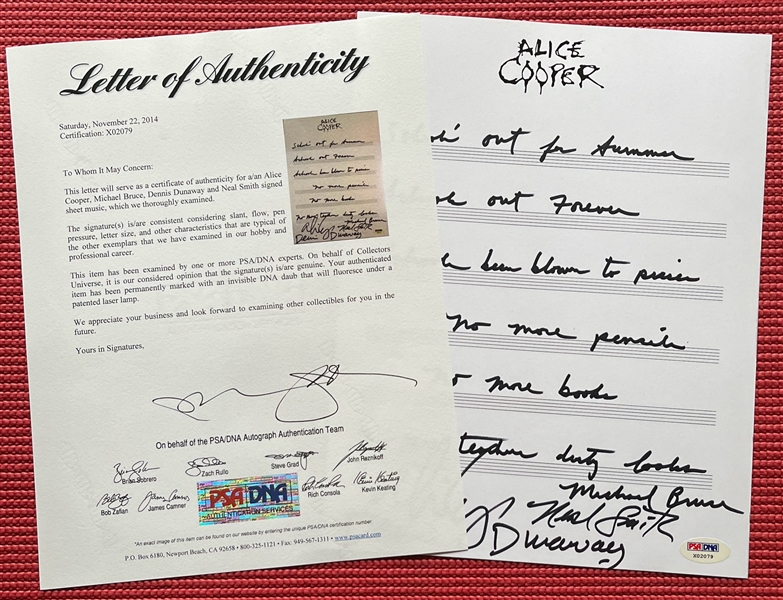 Letter of Authenticity
Saturday, November 22, 2014
Certification: X02079
To Whom It May Concern:
This letter will serve as a certificate of authenticity for a/an Alice
Cooper, Michael Bruce, Dennis Dunaway and Neal Smith signed
sheet music, which we thoroughly examined.
The signature(s) is/are consistent considering slant, flow, pen
pressure, letter size, and other characteristics that are typical of
the other exemplars that we have examined in our hobby and
professional career.
This item has been examined by one or more PSA/DNA experts. On behalf of Collectors
Universe, it is our considered opinion that the signature(s) is/are genuine. Your authenticated
item has been permanently marked with an invisible DNA daub that will fluoresce under a
patented laser lamp.
We appreciate your business and look forward to examining other collectibles for you in the
future.
Yours in Signatures,
On behalf of the PSA/DNA Autograph Authentication Team
Brian Sobrero
Zach Rullo
Steve Grad
John Reznikoff
Bob Zafian
James Camner
PSA/DNA
AUTHENTICATION SERVICES
Rich Consola
Kevin Keating
*An exact image of this item can be viewed on our website by entering the unique PSA/DNA certification number.
P.O. Box 6180, Newport Beach, CA 92658 • 800-325-1121 • Fax: 949-567-1311 • www.psacard.com
ALICE
COOPER
School out for Summer
School out Forever
School been blown to pieces
No more pencils
No more books
No more together dirty looks
Michael Bruce
Neal Smith
Dennis Dunaway
ALICE
COOPER
out for Summer
out Forever
been blown to pieces
No more pencils
more books
together dirty looks
Michael Bruce
Neal Smith
Dunaway
PSA/DNA
X02079